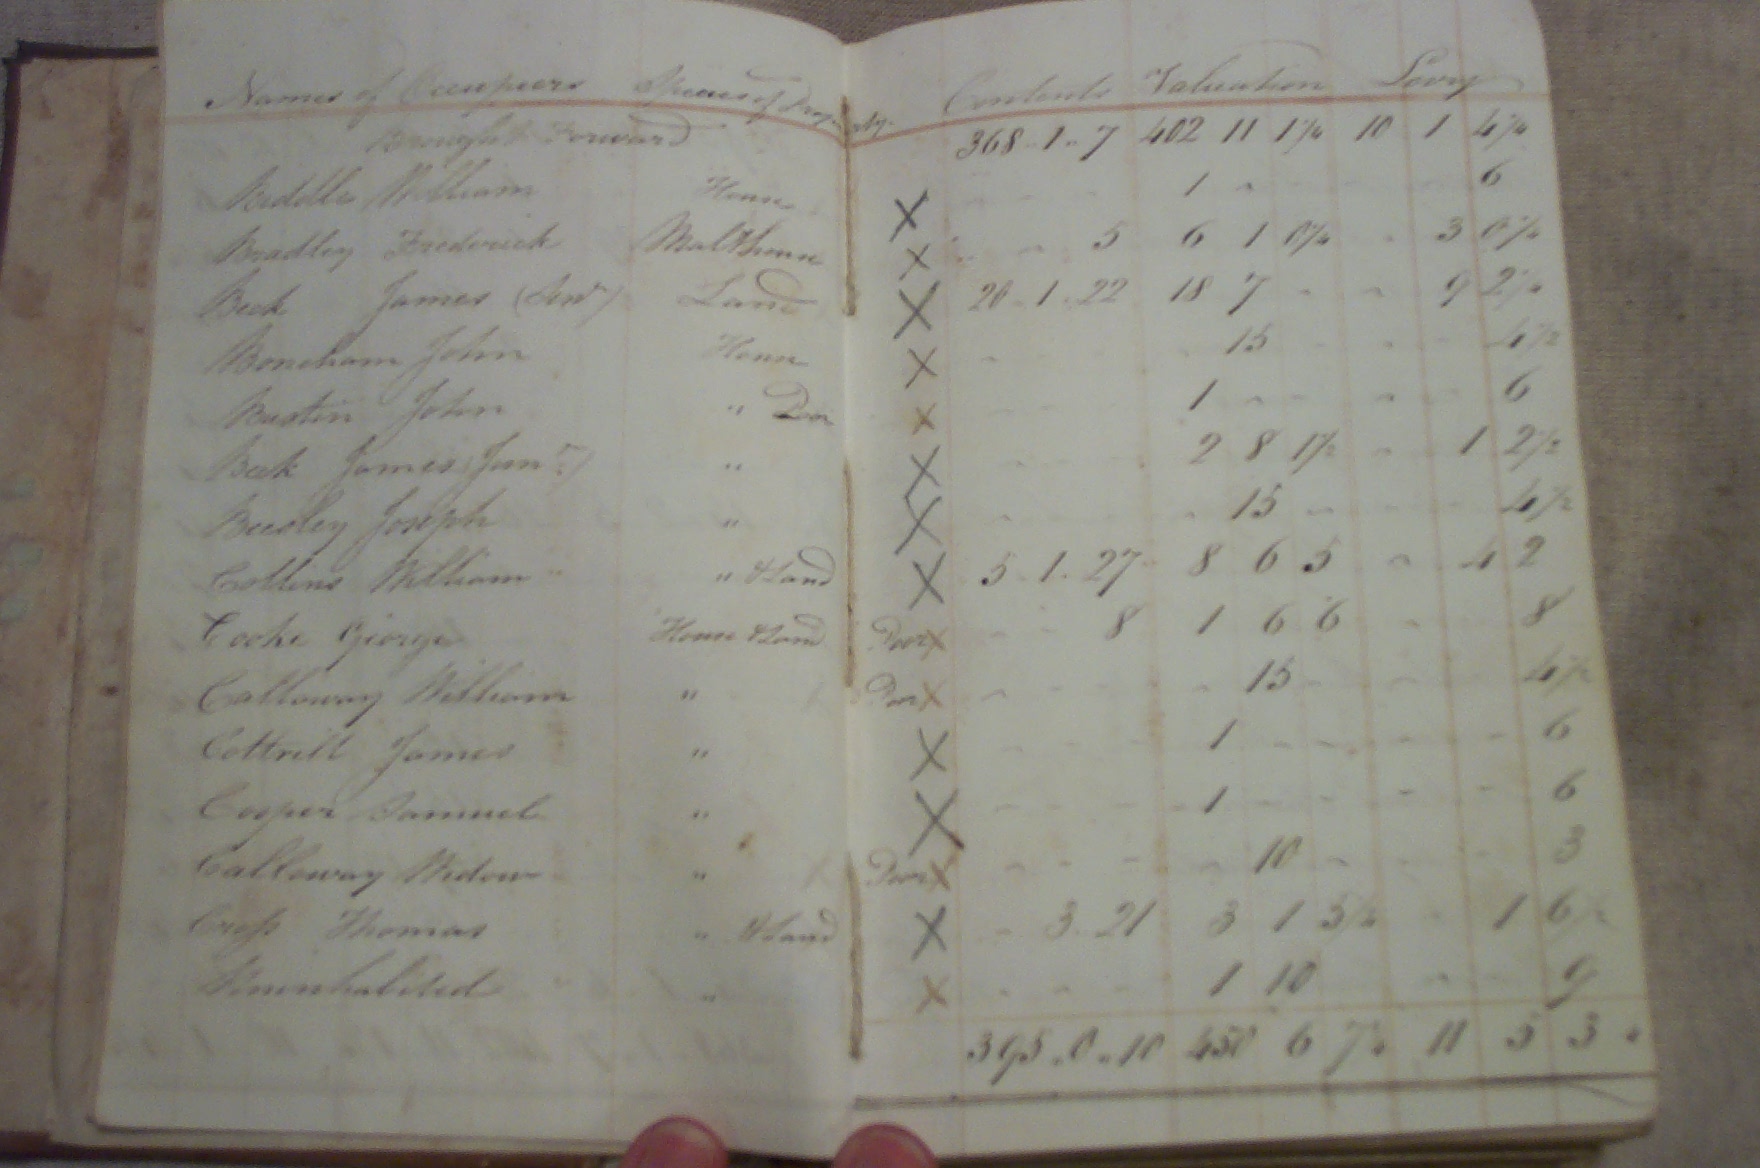 Names of Occupiers Species of Property Contents Valuation Levy
Brought Forward 368 - 1 - 7 402 11 1¼ 10 1 4¼
Biddle William House X 1 - 6
Bradley Frederick Malthouse X 5 6 1 0¼ 3 0¼
Beck James (Senr) Land X 20 - 1 - 22 18 7 - - 9 2¼
Boneham John House X 15 4½
Bustin John " Poor X 1 6
Beck James (Junr) " X 2 8 1½ 1 2½
Beesley Joseph " X 15 4½
Collins William " & Land X 5 - 1 - 27 8 6 5 - 4 2
Cooke George House & Land Poor X 8 1 6 6 8
Calloway William " Poor X 15 4½
Cottrill James " X 1 6
Cooper Samuel " X 1 6
Calloway Widow " Poor X 10 3
Cross Thomas " & Land X 3 - 21 3 1 5¼ 1 6½
Uninhabited " X 1 10 9
395 - 0 - 10 450 6 7¼ 11 5 3